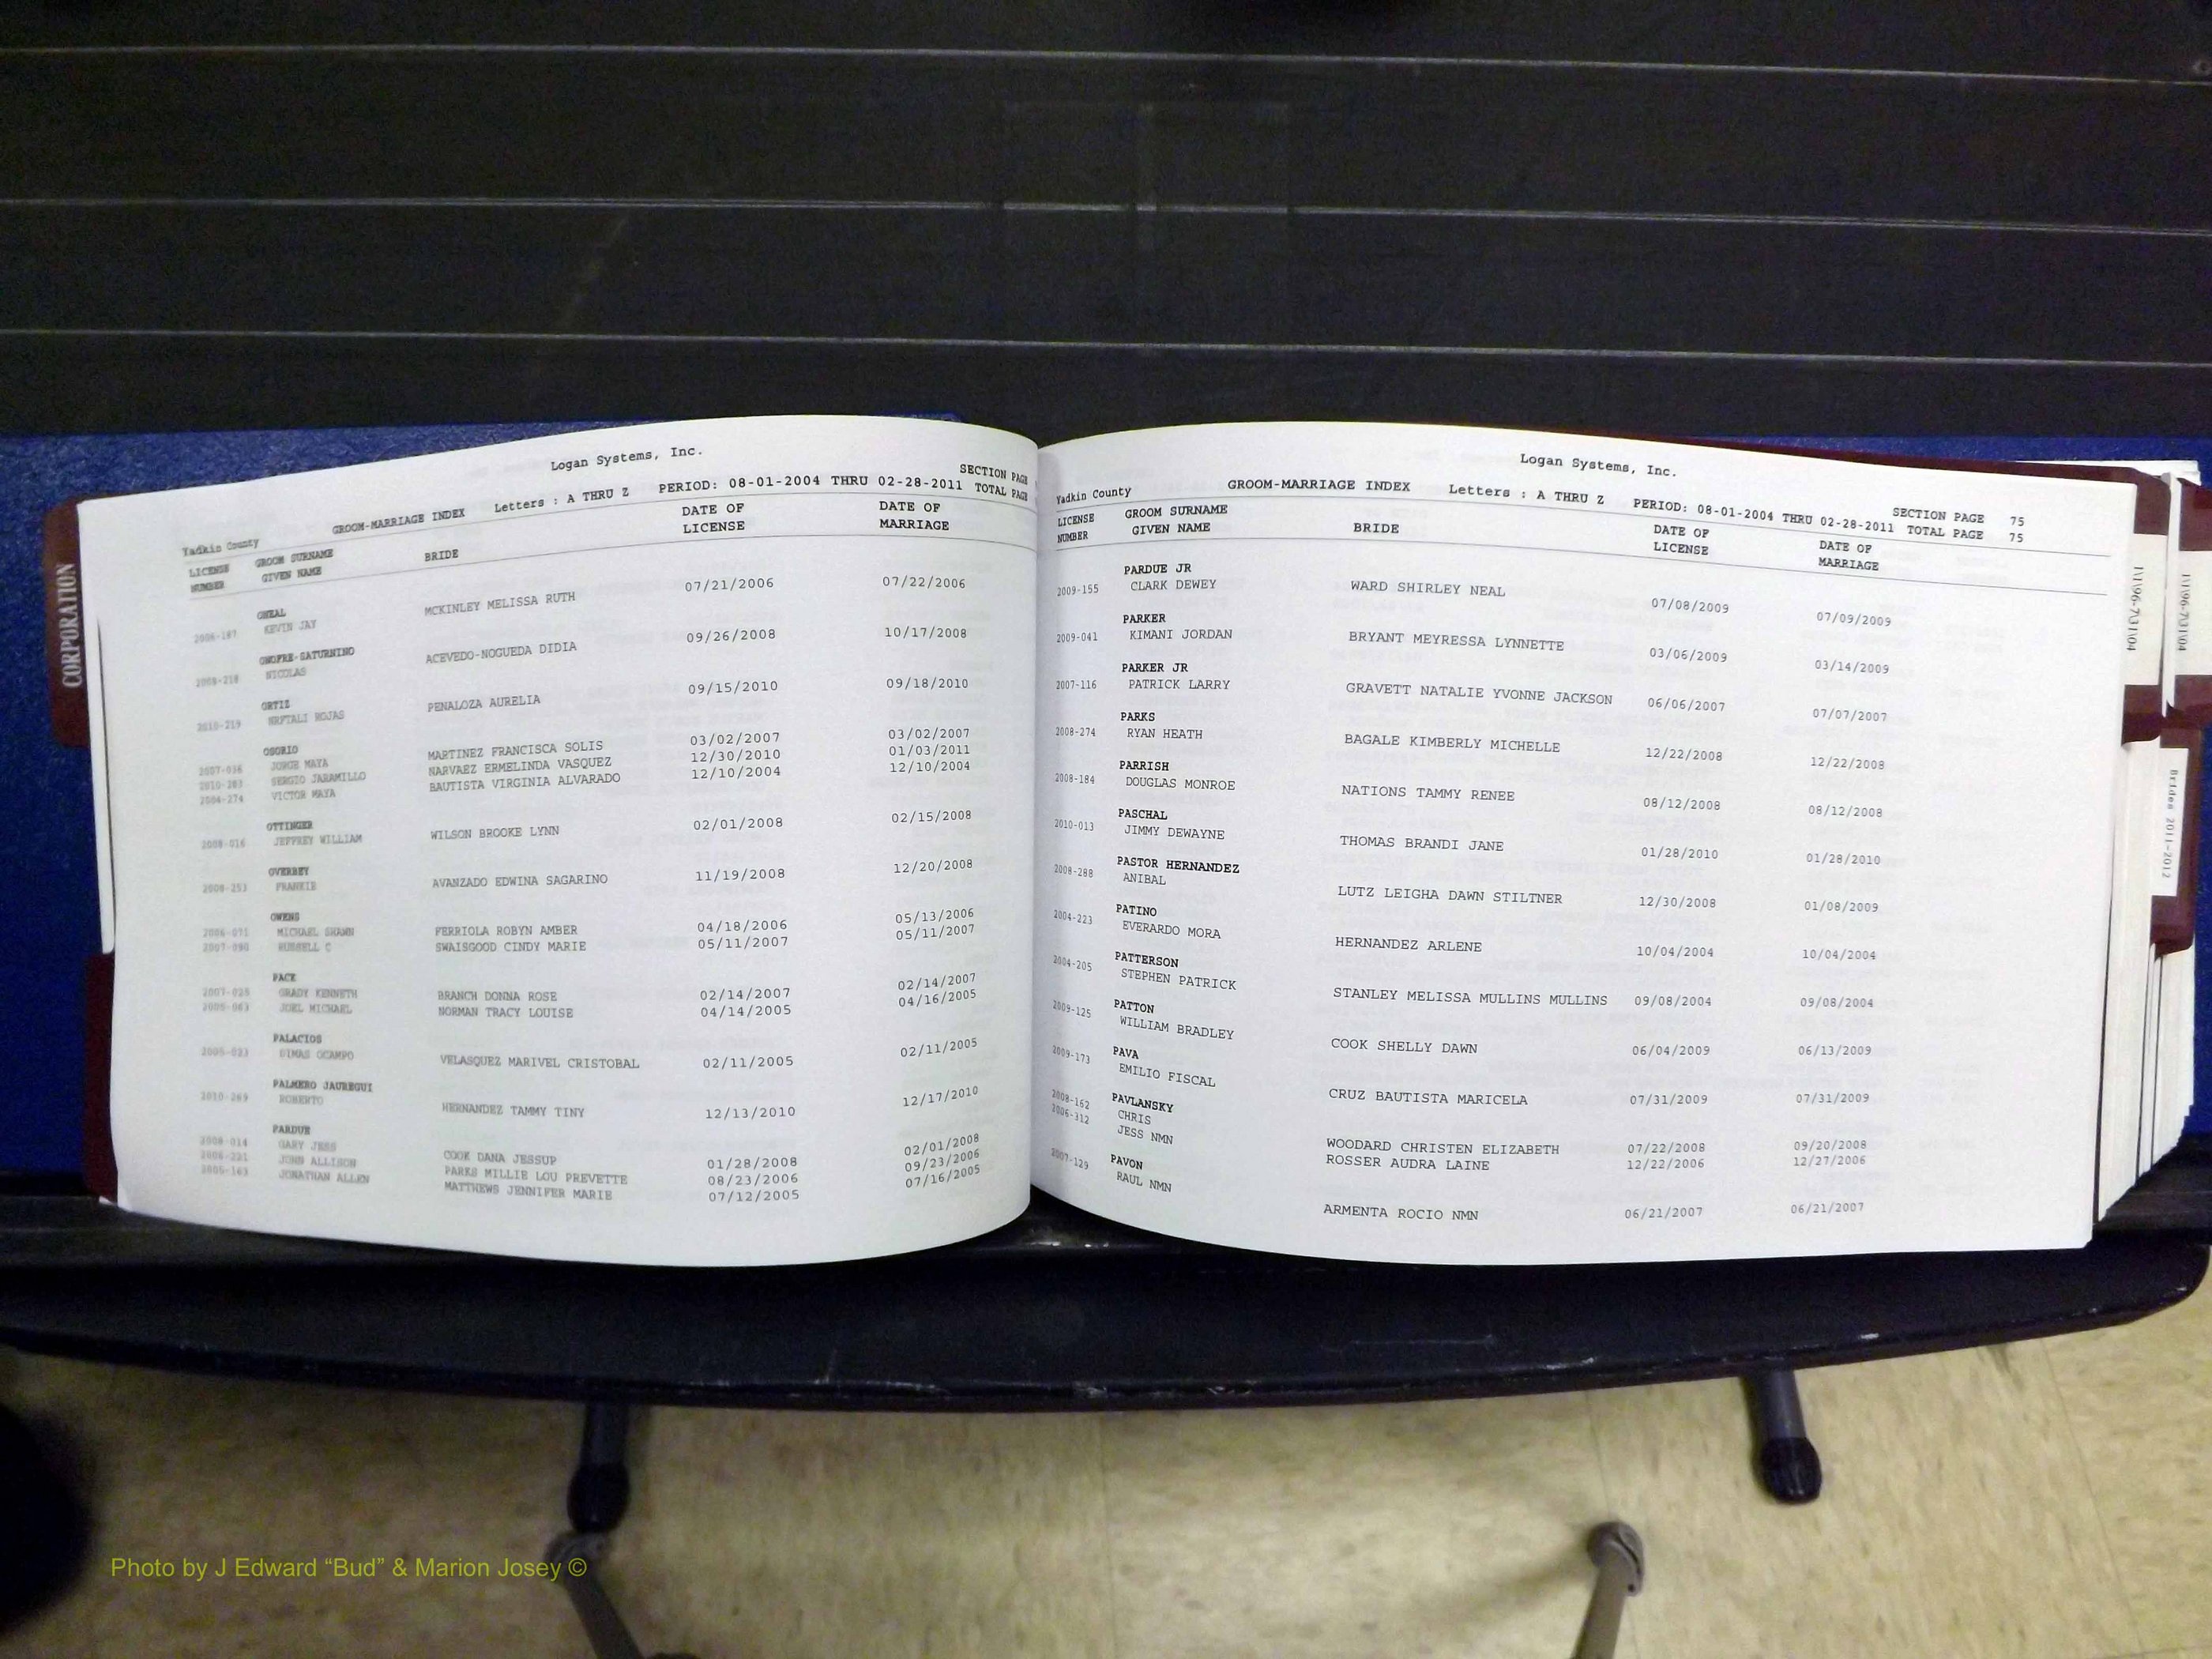 CORPORATION
Logan Systems, Inc.
SECTION PAGE
Yadkin County GROOM-MARRIAGE INDEX Letters : A THRU Z PERIOD: 08-01-2004 THRU 02-28-2011 TOTAL PAGE
LICENSE GROOM SURNAME DATE OF DATE OF
NUMBER GIVEN NAME BRIDE LICENSE MARRIAGE
ONEAL
2006-187 KEVIN JAY MCKINLEY MELISSA RUTH 07/21/2006 07/22/2006
ONOFRE-SATURNINO
2008-218 NICOLAS ACEVEDO-NOGUEDA DIDIA 09/26/2008 10/17/2008
ORTIZ
2010-219 NEFTALI ROJAS PENALOZA AURELIA 09/15/2010 09/18/2010
OSORIO
2007-036 JORGE MAYA MARTINEZ FRANCISCA SOLIS 03/02/2007 03/02/2007
SERGIO JARAMILLO NARVAEZ ERMELINDA VASQUEZ 12/30/2010 01/03/2011
2004-274 VICTOR MAYA BAUTISTA VIRGINIA ALVARADO 12/10/2004 12/10/2004
OTTINGER
2008-016 JEFFREY WILLIAM WILSON BROOKE LYNN 02/01/2008 02/15/2008
OVERBEY
2008-253 FRANKIE AVANZADO EDWINA SAGARINO 11/19/2008 12/20/2008
OWENS
2006-071 MICHAEL SHAWN FERRIOLA ROBYN AMBER 04/18/2006 05/13/2006
2007-090 RUSSELL C SWAISGOOD CINDY MARIE 05/11/2007 05/11/2007
PACE
2007-025 GRADY KENNETH BRANCH DONNA ROSE 02/14/2007 02/14/2007
2005-063 JOEL MICHAEL NORMAN TRACY LOUISE 04/14/2005 04/16/2005
PALACIOS
2005-023 DIMAS OCAMPO VELASQUEZ MARIVEL CRISTOBAL 02/11/2005 02/11/2005
PALMERO JAUREGUI
2010-269 ROBERTO HERNANDEZ TAMMY TINY 12/13/2010 12/17/2010
PARDUE
2008-014 GARY JESS COOK DANA JESSUP 01/28/2008 02/01/2008
2006-221 JOHN ALLISON PARKS MILLIE LOU PREVETTE 08/23/2006 09/23/2006
2005-163 JONATHAN ALLEN MATTHEWS JENNIFER MARIE 07/12/2005 07/16/2005
Logan Systems, Inc.
SECTION PAGE 75
Yadkin County GROOM-MARRIAGE INDEX Letters : A THRU Z PERIOD: 08-01-2004 THRU 02-28-2011 TOTAL PAGE 75
LICENSE GROOM SURNAME DATE OF DATE OF
NUMBER GIVEN NAME BRIDE LICENSE MARRIAGE
PARDUE JR
2009-155 CLARK DEWEY WARD SHIRLEY NEAL 07/08/2009 07/09/2009
PARKER
2009-041 KIMANI JORDAN BRYANT MEYRESSA LYNNETTE 03/06/2009 03/14/2009
PARKER JR
2007-116 PATRICK LARRY GRAVETT NATALIE YVONNE JACKSON 06/06/2007 07/07/2007
PARKS
2008-274 RYAN HEATH BAGALE KIMBERLY MICHELLE 12/22/2008 12/22/2008
PARRISH
2008-184 DOUGLAS MONROE NATIONS TAMMY RENEE 08/12/2008 08/12/2008
PASCHAL
2010-013 JIMMY DEWAYNE THOMAS BRANDI JANE 01/28/2010 01/28/2010
PASTOR HERNANDEZ
2008-288 ANIBAL LUTZ LEIGHA DAWN STILTNER 12/30/2008 01/08/2009
PATINO
2004-223 EVERARDO MORA HERNANDEZ ARLENE 10/04/2004 10/04/2004
PATTERSON
2004-205 STEPHEN PATRICK STANLEY MELISSA MULLINS MULLINS 09/08/2004 09/08/2004
PATTON
2009-125 WILLIAM BRADLEY COOK SHELLY DAWN 06/04/2009 06/13/2009
PAVA
2009-173 EMILIO FISCAL CRUZ BAUTISTA MARICELA 07/31/2009 07/31/2009
PAVLANSKY
2008-162 CHRIS WOODARD CHRISTEN ELIZABETH 07/22/2008 09/20/2008
2006-312 JESS NMN ROSSER AUDRA LAINE 12/22/2006 12/27/2006
PAVON
2007-129 RAUL NMN ARMENTA ROCIO NMN 06/21/2007 06/21/2007
Brides 2011-2012
Photo by J Edward “Bud” & Marion Josey ©